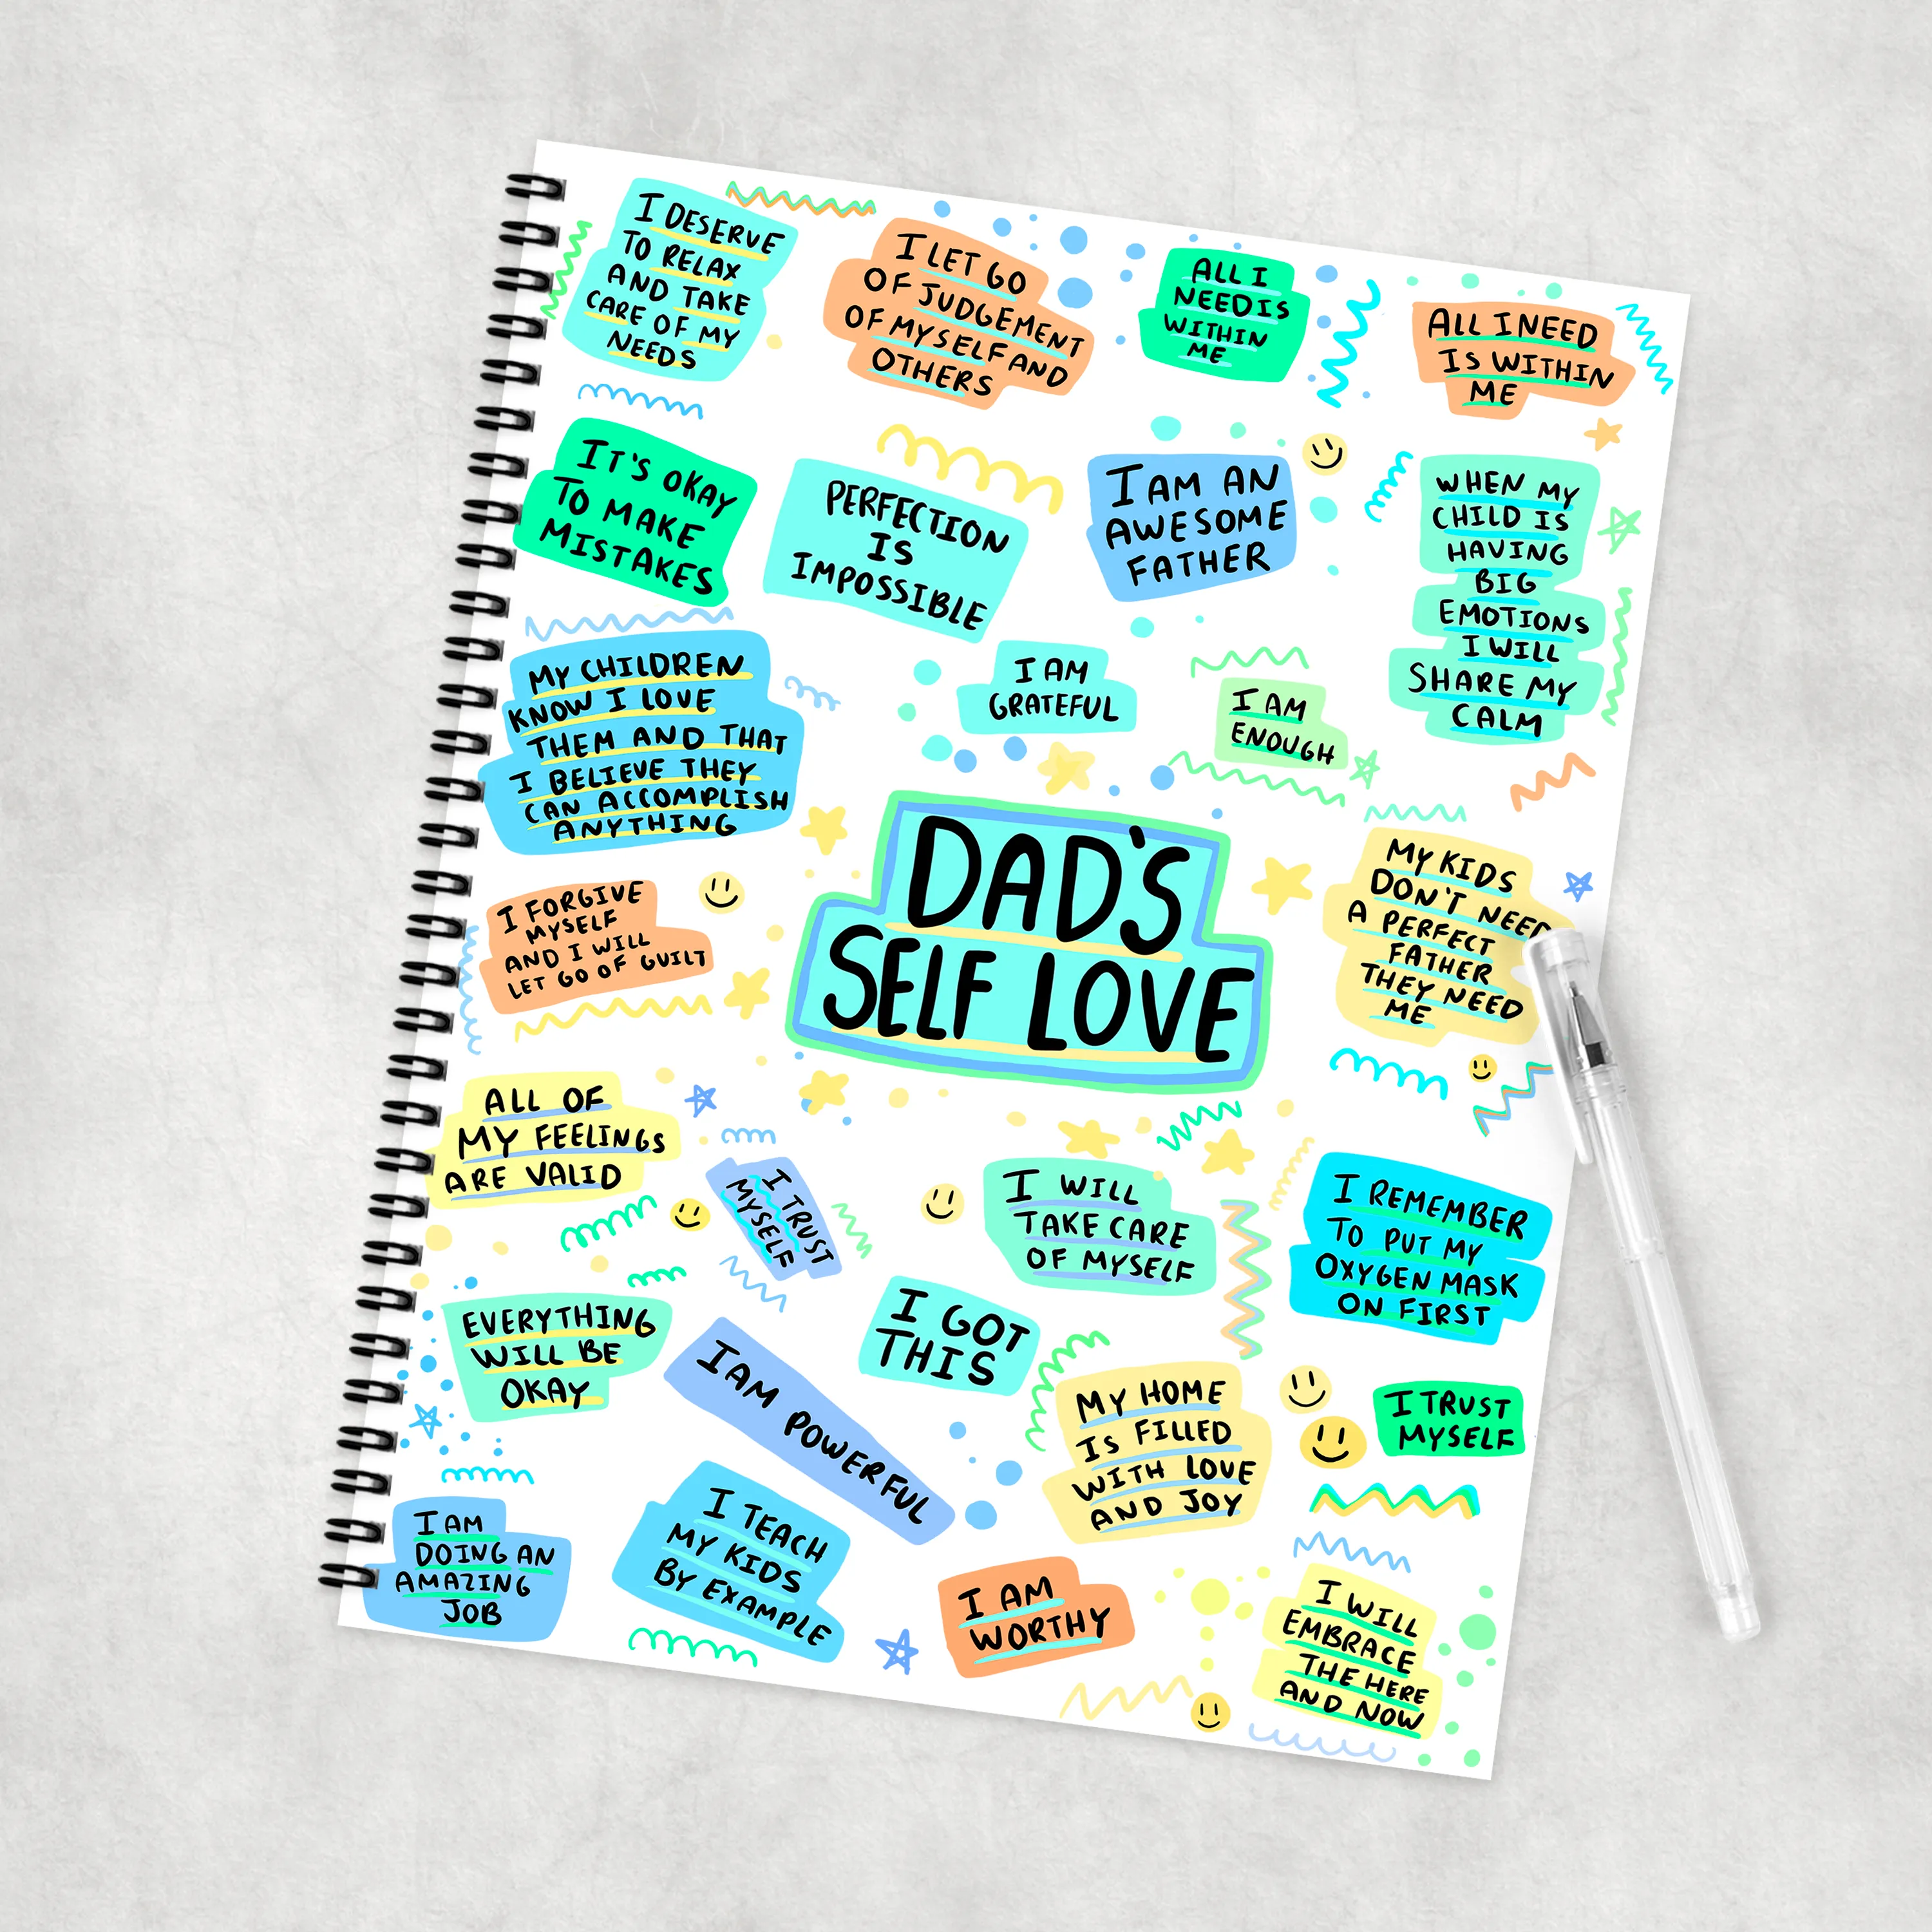 I DESERVE
TO RELAX
AND TAKE
CARE OF MY
NEEDS
I LET GO
OF JUDGEMENT
OF MYSELF AND
OTHERS
ALL I
NEED IS
WITHIN
ME
ALL I NEED
IS WITHIN
ME
IT'S OKAY
TO MAKE
MISTAKES
PERFECTION
IS
IMPOSSIBLE
I AM AN
AWESOME
FATHER
WHEN MY
CHILD IS
HAVING
BIG
EMOTIONS
I WILL
SHARE MY
CALM
MY CHILDREN
KNOW I LOVE
THEM AND THAT
I BELIEVE THEY
CAN ACCOMPLISH
ANYTHING
I AM
GRATEFUL
I AM
ENOUGH
DAD'S
SELF LOVE
MY KIDS
DON'T NEED
A PERFECT
FATHER
THEY NEED
ME
I FORGIVE
MYSELF
AND I WILL
LET GO OF GUILT
ALL OF
MY FEELINGS
ARE VALID
I TRUST
MYSELF
I WILL
TAKE CARE
OF MYSELF
I REMEMBER
TO PUT MY
OXYGEN MASK
ON FIRST
EVERYTHING
WILL BE
OKAY
I AM POWERFUL
I GOT
THIS
MY HOME
IS FILLED
WITH LOVE
AND JOY
I TRUST
MYSELF
I AM
DOING AN
AMAZING
JOB
I TEACH
MY KIDS
BY EXAMPLE
I AM
WORTHY
I WILL
EMBRACE
THE HERE
AND NOW